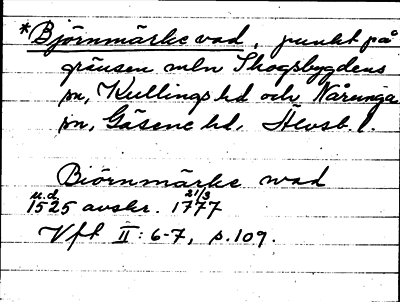 *Björnmärke vad, punkt på
gränsen mln Skogsbygdens
sn, Kullings hd och Nårunga
sn, Gäsene hd, Älvsb. l.
Biörnmärke wad
u.d. 21/3
1525 avskr. 1777
Vft II: 6-7, s. 109.